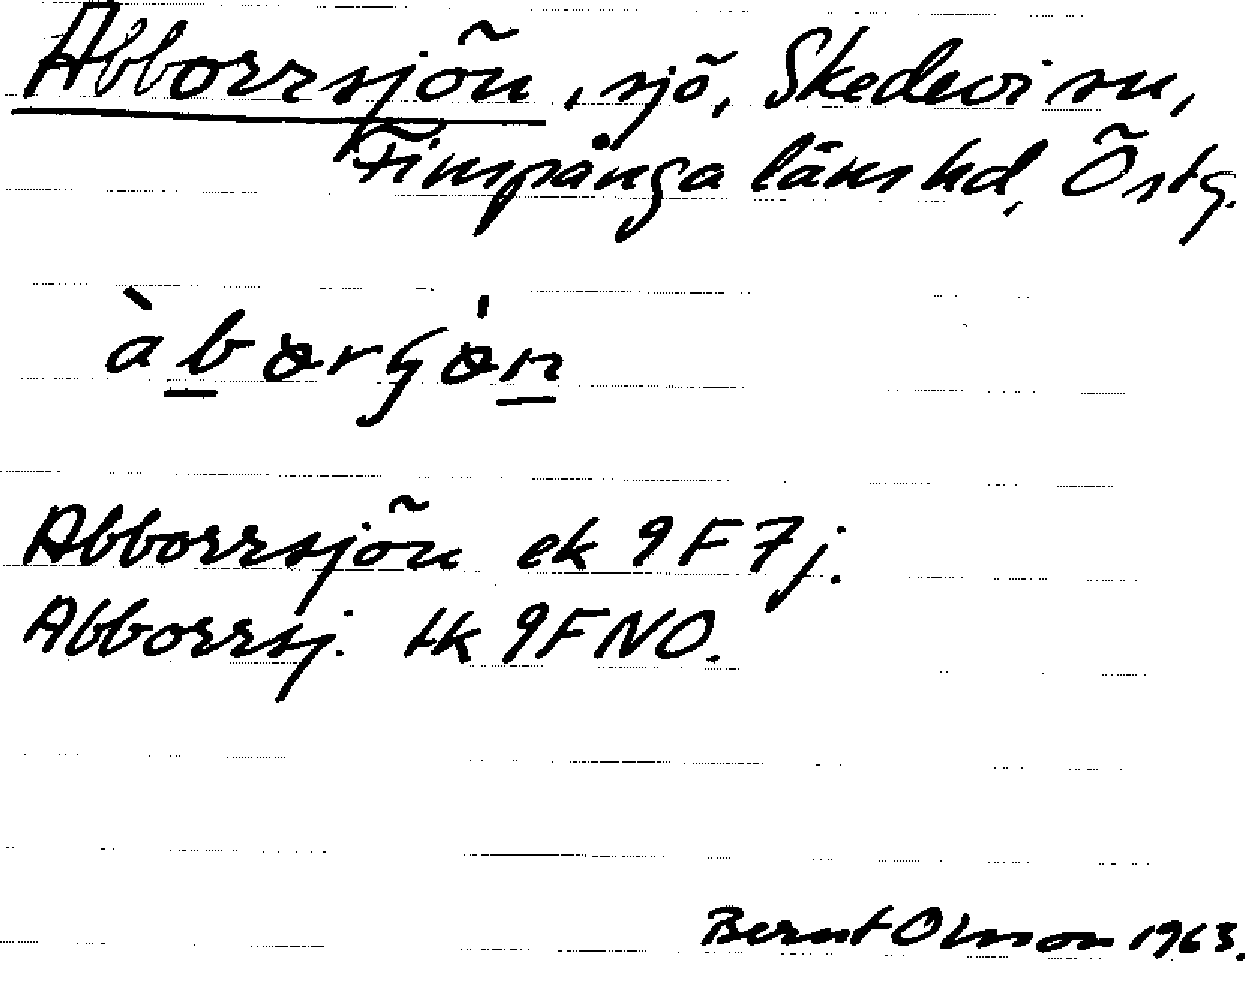 Abborrsjön, sjö, Skedevi sn,
Finspånga läns hd, Östg.
àbɵrʃɵ́n
Abborrsjön ek 9F7j.
Abborrsj. tk 9FNO.
Bernt Olsson 1963.